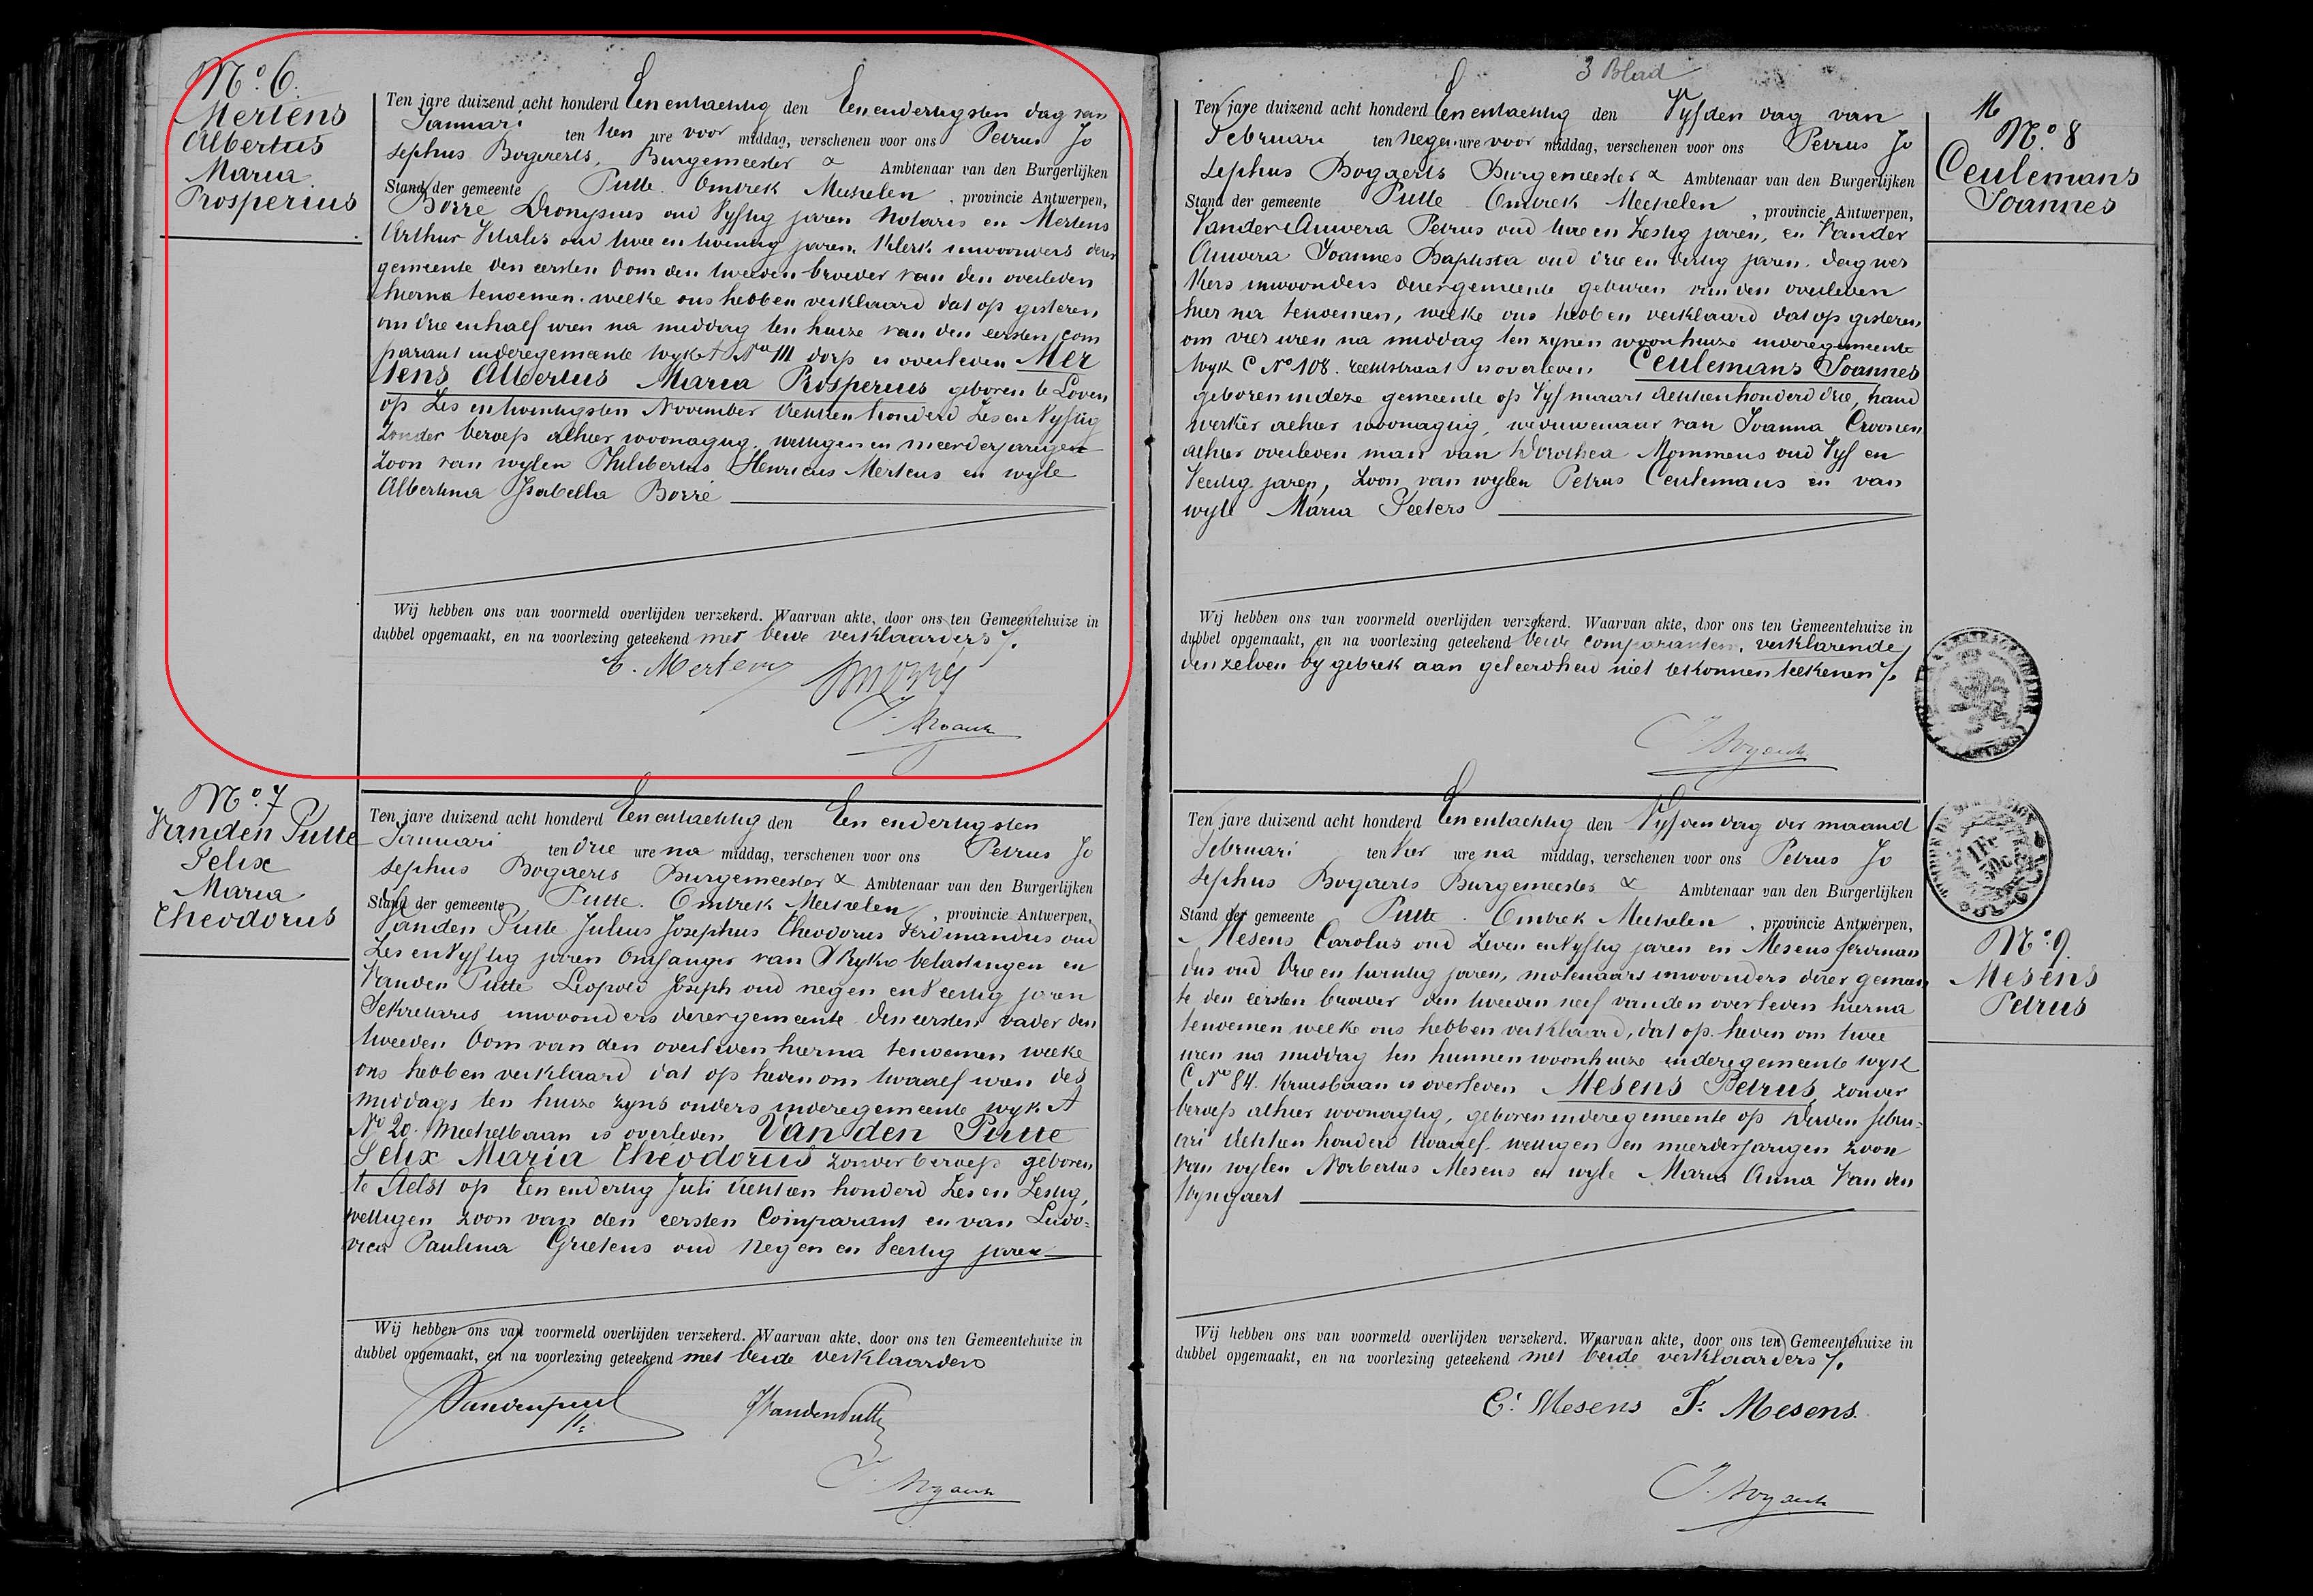 Nº 6.
Mertens
Albertus
Maria
Prosperius
Ten jare duizend acht honderd Eenentachtig den Eenendertigsten dag van
Januari ten tien ure voor middag, verschenen voor ons Petrus Jo
sephus Bogaerts, Burgemeester & Ambtenaar van den Burgerlijken
Stand der gemeente Putte Omtrek Mechelen, provincie Antwerpen,
Borré Dionysius oud Vyftig jaren Notaris en Mertens
Arthur Vitalis oud twee en twintig jaren, klerk inwoonders dezer
gemeente den eersten Oom den tweeden broeder van den overleden
hierna tenoemen. welke ons hebben verklaard dat op gisteren
om drie en half uren na middag ten huize van den eersten com
parant inderegemeente wyk A No 111 dorp is overleden Mer
tens Albertus Maria Prosperius geboren te Loven
op Zes entwintigsten November Achttienhonderd Zes en Vyftig
Zonder beroep alhier woonagtig, wettigen en meerderjarigen
Zoon van wylen Philibertus Henricus Mertens en wyle
Albertina Isabella Borré
Wij hebben ons van voormeld overlijden verzekerd. Waarvan akte, door ons ten Gemeentehuize in
dubbel opgemaakt, en na voorlezing geteekend met beide verklaarders /.
Mertens
Nº 7
Vanden Putte
Felix
Maria
Theodorus
Ten jare duizend acht honderd Eenentachtig den Een endertigsten
Januari ten drie ure na middag, verschenen voor ons Petrus Jo
sephus Bogaerts Burgemeester & Ambtenaar van den Burgerlijken
Stand der gemeente Putte. Omtrek Mechelen, provincie Antwerpen,
Vanden Putte Julius Josephus Theodorus Ferdinandus oud
Zes en Vyftig jaren Ontfanger van S'Ryks belastingen en
Vanden Putte Leopold Joseph oud negen en Veertig jaren
Sekretaris inwoonders dezergemeente den eersten vader den
tweeden Oom van den overleden hierna tenoemen welke
ons hebben verklaard dat op heden om twaalf uren des
middags ten huize zyns ouders inderegemeente wyk A
No 20. Mechelbaan is overleden Van den Putte
Felix Maria Theodorus zonder beroep geboren
te Aelst op Een endertig Juli Achttien honderd Zes en Zestig,
wettigen zoon van den eersten Comparant en van Ludo-
vica Paulina Grietens oud Negen en Veertig jaren
Wij hebben ons van voormeld overlijden verzekerd. Waarvan akte, door ons ten Gemeentehuize in
dubbel opgemaakt, en na voorlezing geteekend met beide verklaarders
VandenPutte
3 Blad
Nº 8
Ceulemans
Joannes
Ten jare duizend acht honderd Eenentachtig den Vyfden dag van
Februari ten negen ure voor middag, verschenen voor ons Petrus Jo
sephus Bogaerts Burgemeester & Ambtenaar van den Burgerlijken
Stand der gemeente Putte Omtrek Mechelen, provincie Antwerpen,
Vander Auwera Petrus oud twee en Zestig jaren, en Vander
Auwera Joannes Baptista oud drie en dertig jaren. dagwer
kers inwoonders dezergemeente geburen van den overleden
hier na tenoemen, welke ons hebben verklaard dat op gisteren
om vier uren na middag ten zynen woonhuize inderegemeente
Wyk C No 108. is overleden Ceulemans Joannes
geboren indeze gemeente op Vyf maart Achttienhonderd drie, hand
werker alhier woonagtig, weduwenaar van Joanna Croonen
alhier overleden man van Dorothea Mommens oud Vyf en
Veertig jaren, Zoon van wylen Petrus Ceulemans en van
wyle Maria Peeters
Wij hebben ons van voormeld overlijden verzekerd. Waarvan akte, door ons ten Gemeentehuize in
dubbel opgemaakt, en na voorlezing geteekend beide comparanten, verklarende
denzelven by gebrek aan geleerdheid niet tekonnen teekenen /.
Ten jare duizend acht honderd Eenentachtig den Vyfden dag der maand
Februari ten Vier ure na middag, verschenen voor ons Petrus Jo
sephus Bogaerts Burgemeester & Ambtenaar van den Burgerlijken
Stand der gemeente Putte. Omtrek Mechelen, provincie Antwerpen,
Mesens Carolus oud Zeven en Vyftig jaren en Mesens Ferdinan
dus oud drie en twintig jaren, molenaars inwoonders dezer gemeen
te den eersten broeder den tweeden neef vanden overleden hierna
tenoemen welke ons hebben verklaard, dat op heden om twee
uren na middag ten hunnen woonhuize inderegemeente wyk
C No 84. Kruisbaan is overleden Mesens Petrus, zonder
beroep alhier woonagtig, geboren inderegemeente op Febru-
ari Achttien honderd twaalf. wettigen en meerderjarigen zoon
van wylen Norbertus Mesens en wyle Maria Anna Van den
Wyngaert
Wij hebben ons van voormeld overlijden verzekerd. Waarvan akte, door ons ten Gemeentehuize in
dubbel opgemaakt, en na voorlezing geteekend met beide verklaarders /.
C. Mesens F. Mesens.
Nº 9
Mesens
Petrus